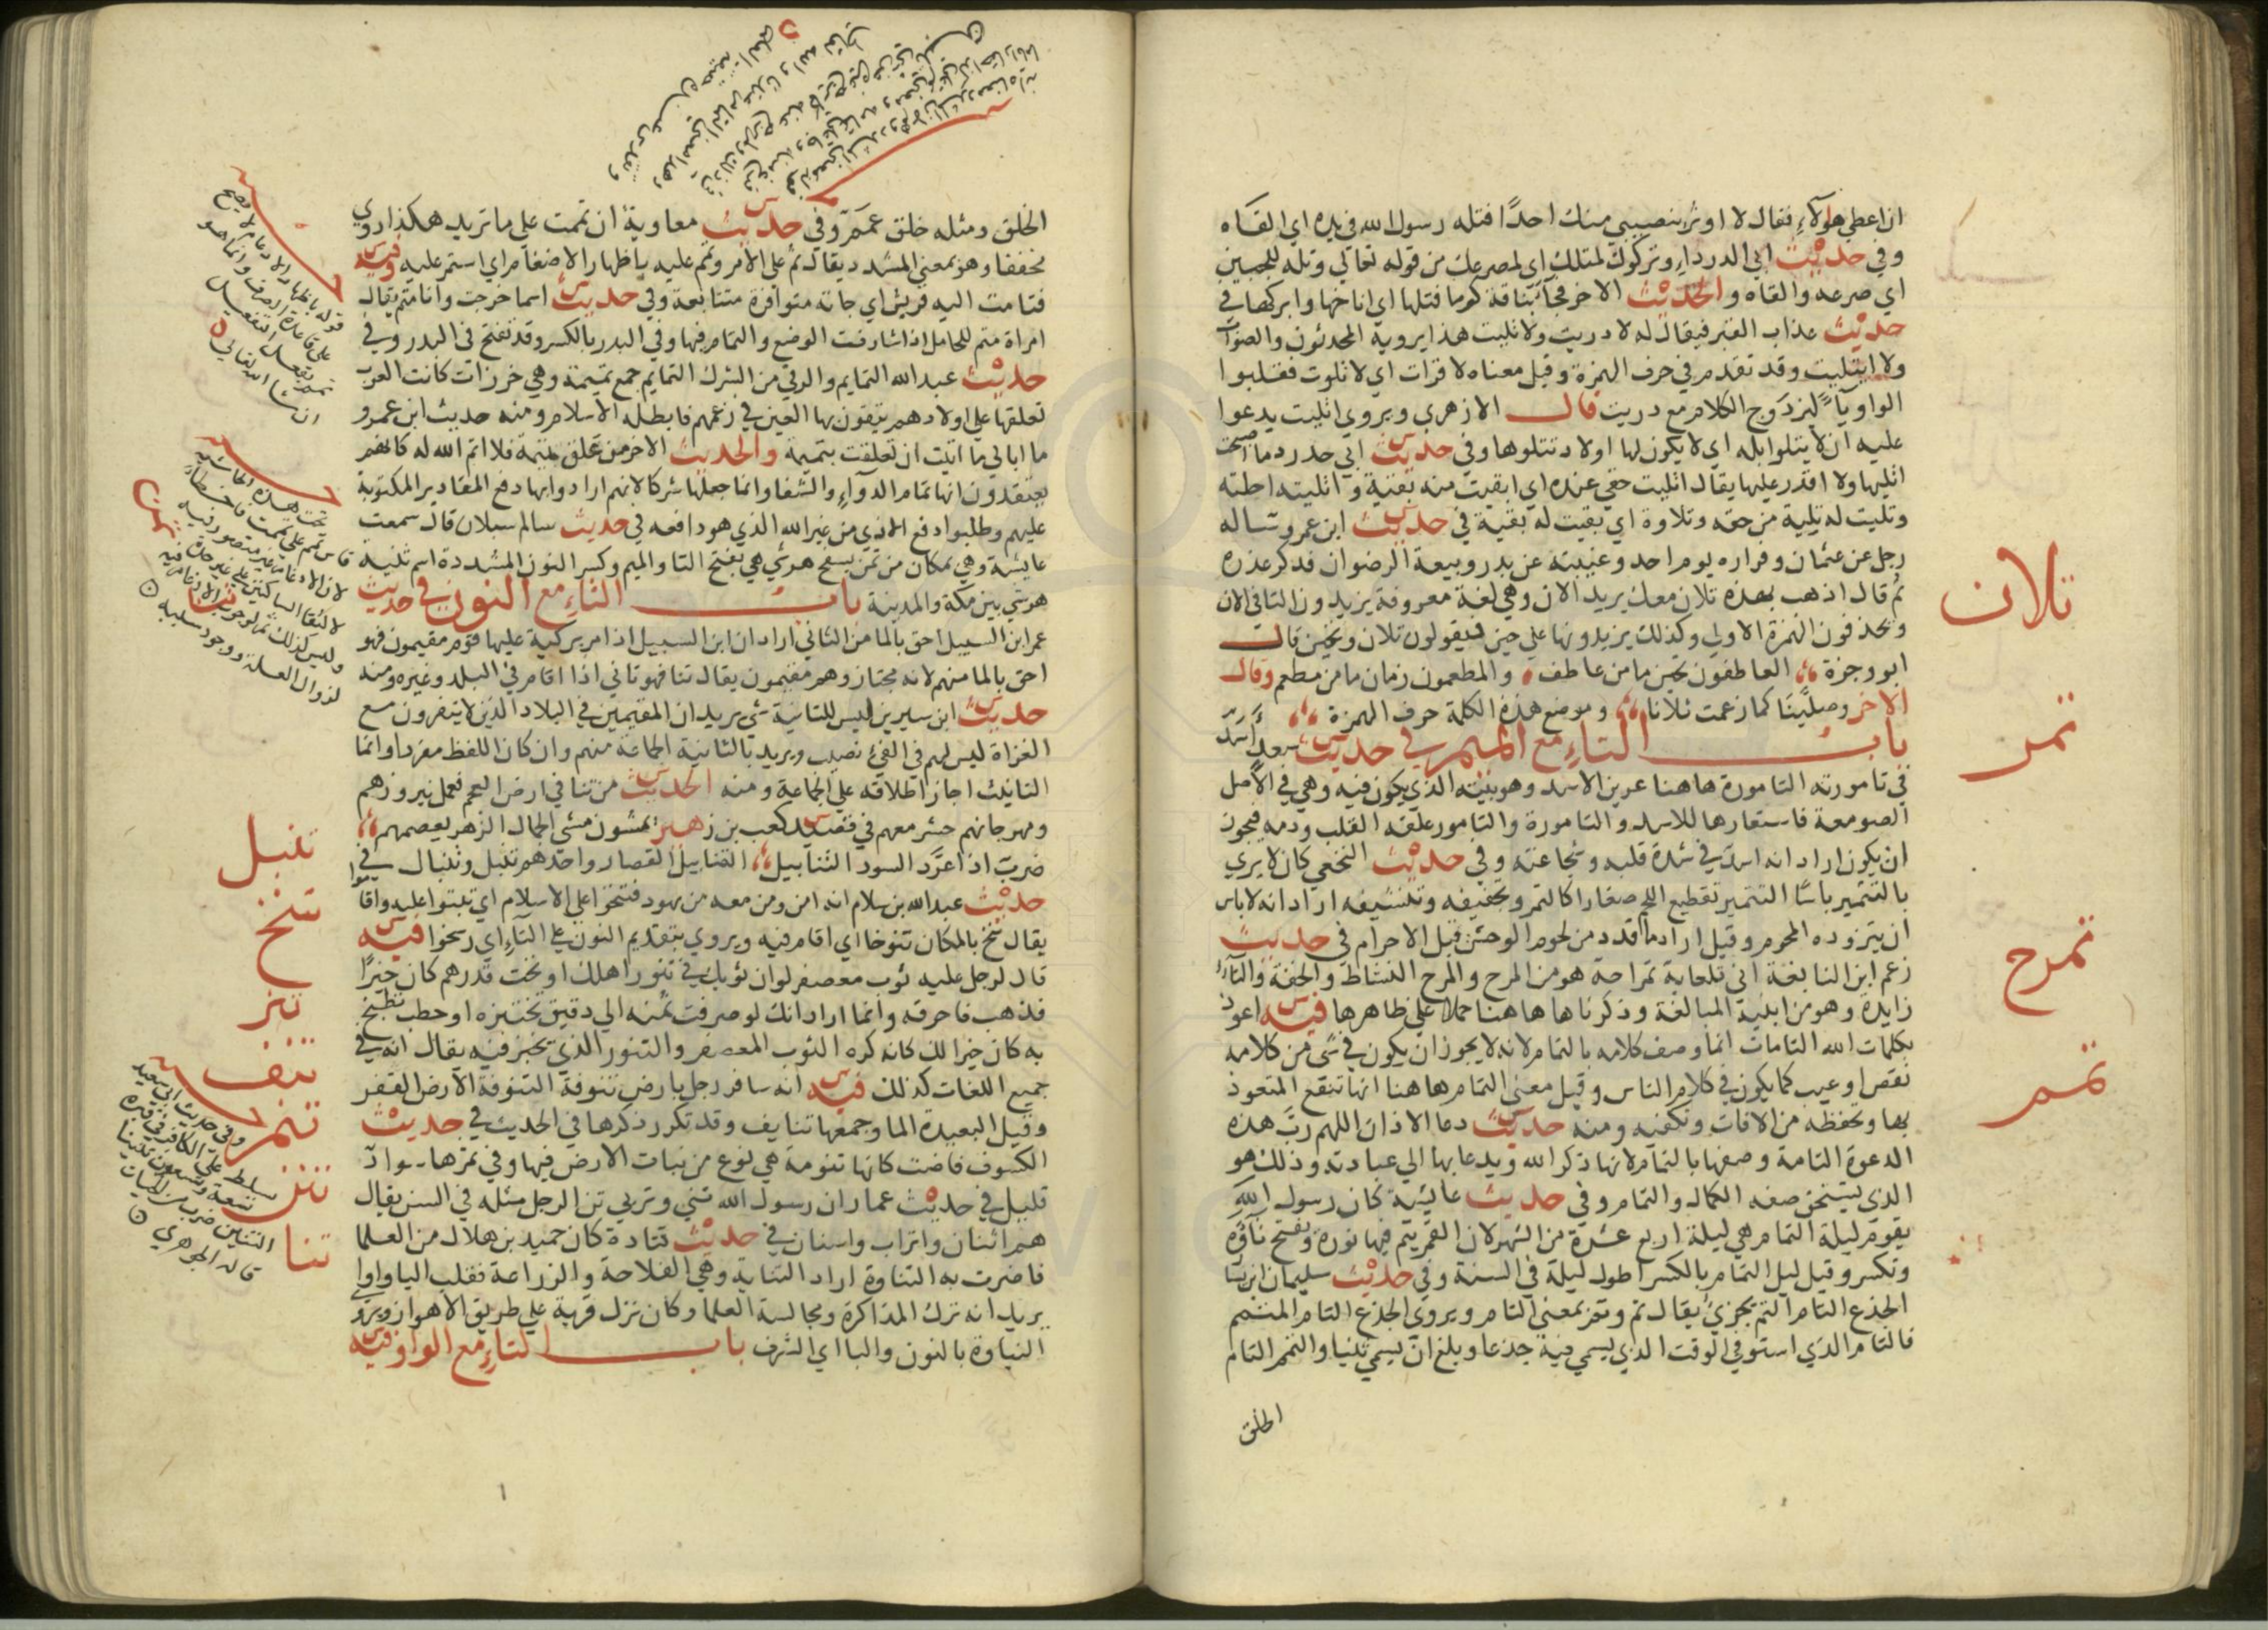 ان اعطي هؤلآءِ فقال لا اوثر بنصيبي منك احدًا فتله رسول الله في يده اي القاه
وفي حديث ابي الدرداءِ وتركوك لمتلك اي لمصرعك من قوله تعالي وتله للجبين
اي صرعه والقاه والحديث الاخر فجآء بناقة كوما فتلها اي اناخها وابركها في
حديث عذاب القبر فيقال له لا دريت ولا تليت هذا يرويه المحدثون والصواب
ولا ايتليت وقد تقدم في حرف الهمزة وقيل معناه لا قرات اي لا تلوت فقلبوا
الواو يآءً ليزدوج الكلام مع دريت قال الازهري ويروي اتليت يدعوا
عليه ان لا يتلوا بله اي لا يكون لها اولاد تتلوها وفي حديث ابي حدرد ما اصبحت
اتليها ولا اقدر عليها يقال اتليت حقي عنده اي ابقيت منه بقية واتليته احلته
وتليت له تلية من حقه وتلاوة اي بقيت له بقية في حديث ابن عمر وساله
رجل عن عثمان وفراره يوم احد وغيبته عن بدر وبيعة الرضوان فذكر عذره
ثم قال اذهب بهذه تلان معك يريد الان وهي لغة معروفة يزيدون التا في الان
ويحذفون الهمزة الاولي وكذلك يزيدونها علي حين فيقولون تلان وتحين قال
ابو وجزة العاطفون تحين ما من عاطف والمطعمون زمان ما من مطعم وقال
الاخر وصلينا كما زعمت تلانا وموضع هذه الكلمة حرف الهمزة
باب التاءِ مع الميم في حديث سعد اسد
في تامورته التامورة هاهنا عرين الاسد وهو بيته الذي يكون فيه وهي في الاصل
الصومعة فاستعارها للاسد والتامورة والتامور علقة القلب ودمه فيجوز
ان يكون اراد انه اسد في شدة قلبه وشجاعته وفي حديث النخعي كان لا يري
بالتتمير باسًا التتمير تقطيع اللحم صغارا كالتمر وتجفيفه وتنشيفه اراد انه لا باس
ان يتزوده المحرم وقيل اراد ما قدد من لحوم الوحش قبل الاحرام في حديث
زعم ابن النابغة اني تلعابة تمراحة هو من المرح والمرح النشاط والخفة والتاء
زايدة وهو من ابنية المبالغة وذكرناها هاهنا حملا علي ظاهرها فيه اعوذ
بكلمات الله التامات انما وصف كلامه بالتمام لانه لا يجوز ان يكون في شي من كلامه
نقص او عيب كما يكون في كلام الناس وقيل معني التمام هاهنا انها تنفع المتعوذ
بها وتحفظه من الافات وتكفيه ومنه حديث دعا الاذان اللهم رب هذه
الدعوة التامة وصفها بالتمام لانها ذكر الله ويدعا بها الي عبادته وذلك هو
الذي يستحق صفه الكمال والتمام وفي حديث عايشة كان رسول الله
يقوم ليلة التمام هي ليلة اربع عشرة من الشهر لان القمر يتم فيها نوره وتفتح تاؤه
وتكسر وقيل ليل التمام بالكسر اطول ليلة في السنة وفي حديث سليمان ابن يسار
الجذع التام التم يجزئ يقال تم وتم بمعني التام ويروي الجذع التام المتمم
فالتام الذي استوفي الوقت الذي يسمي فيه جذعا وبلغ ان يسمي ثنيا والتمم التام
الخلق
تلان
تمر
تمرح
تمم
الخلق ومثله خلق عمم وفي حديث معاوية ان تممت علي ما تريد هكذا روي
مخففا وهو بمعني المشدد يقال تم علي الامر وتمم عليه باظهار الادغام اي استمر عليه وفيه
فتتامت اليه قريش اي جاته متوافرة متتابعة وفي حديث اسما خرجت وانا متم يقال
امراة متم للحامل اذا شارفت الوضع والتمام فيها وفي البدر بالكسر وقد تفتح في البدر وفي
حديث عبدالله التمايم والرقي من الشرك التمايم جمع تميمة وهي خرزات كانت العرب
تعلقها علي اولادهم يتقون بها العين في زعمهم فابطله الاسلام ومنه حديث ابن عمرو
ما ابالي ما اتيت ان تعلقت بتميمة والحديث الاخر من علق تميمة فلا اتم الله له كانهم
يعتقدون انها تمام الدوآءِ والشفا وانما جعلها شركا لانهم ارادوا بها دفع المقادير المكتوبة
عليهم وطلبوا دفع الاذي من غير الله الذي هو دافعه في حديث سالم سبلان قال سمعت
عايشة وهي بمكان من تمن بسفح هرشي هي بفتح التا والميم وكسر النون المشددة اسم ثنية
هرشي بين مكة والمدينة باب التاءِ مع النون في حديث
عمر ابن السبيل احق بالما من التاني اراد ان ابن السبيل اذا مر بركية عليها قوم مقيمون فهو
احق بالما منهم لانه مجتاز وهم مقيمون يقال تنا فهو تاني اذا اقام في البلد وغيره ومنه
حديث ابن سيرين ليس للتانية شي يريد ان المقيمين في البلاد الذين لا ينفرون مع
الغزاة ليس لهم في الفئ نصيب ويريد بالتانية الجماعة منهم وان كان اللفظ مفردا وانما
التانيث اجاز اطلاقه علي الجماعة ومنه الحديث من تنا في ارض العجم فعمل نيروزهم
ومهرجانهم حشر معهم في قصيد كعب بن زهير يمشون مشي الجمال الزهر يعصمهم
ضرب اذا عرد السود التنابيل التنابيل القصار واحدهم تنبل وتنبال في
حديث عبدالله بن سلام انه امن ومن معه من يهود فتنخوا علي الاسلام اي ثبتوا عليه واقاموا
يقال تنخ بالمكان تنوخا اي اقام فيه ويروي بتقديم النون علي التاءِ اي رسخوا فيه
قال لرجل عليه ثوب معصفر لو ان ثوبك في تنور اهلك او تحت قدرهم كان خيرًا
فذهب فاحرقه وانما اراد انك لو صرفت ثمنه الي دقيق تختبزه او حطب تطبخ
به كان خيرا لك كانه كره الثوب المعصفر والتنور الذي يخبز فيه يقال انه في
جميع اللغات كذلك فيه انه سافر رجل بارض تنوفة التنوفة الارض القفر
وقيل البعيدة الما وجمعها تنايف وقد تكرر ذكرها في الحديث في حديث
الكسوف فاضت كانها تنومة هي نوع من نبات الارض فيها وفي ثمرها سواد
قليل في حديث عمار ان رسول الله تني وتربي تن الرجل مثله في السن يقال
هم اتنان واتراب واسنان في حديث قتادة كان حميد بن هلال من العلما
فاضرت به التناوة اراد التناية وهي الفلاحة والزراعة فقلب الياواوا
يريد انه ترك المذاكرة ومجالسة العلما وكان نزل قرية علي طريق الاهواز ويروي
النباوة بالنون والبا اي الشرف باب التاءِ مع الواو فيه
تمن
تنا
تنبل
تنخ
تنر
تنف
تنم
تنن
تنا
قوله باظهار الادغام لا يصح
علي قاعدة الصرف وانما هو
ان شا الله تعالي
لزوال العلة ووجود سلبه
وفي حديث ابي سعيد
يسلط علي الكافر في قبره
تسعة وتسعون تنينا
التنين ضرب من الحيات
قاله الجوهري